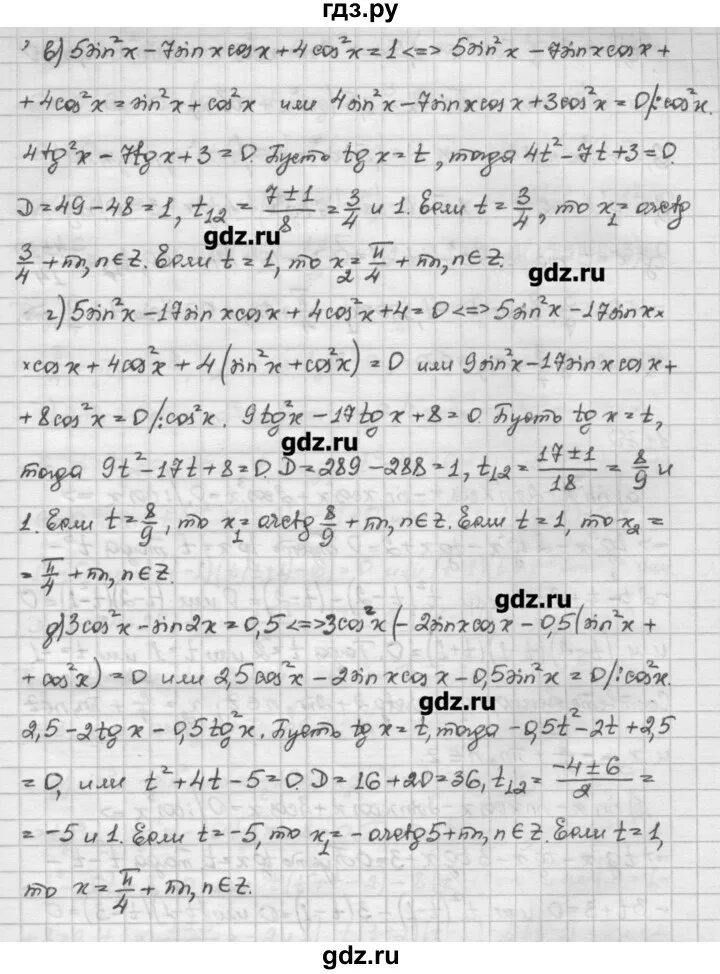 гдз.ру
в) 5sin²x – 7sin x cos x + 4cos²x = 1 <=> 5sin²x – 7sin x cos x +
+ 4cos²x = sin²x + cos²x или 4sin²x – 7sin x cos x + 3cos²x = 0 /:cos²x.
4tg²x – 7tg x + 3 = 0. Пусть tg x = t, тогда 4t² – 7t + 3 = 0.
D = 49 – 48 = 1, t₁₂ = (7 ± 1)/8 = 3/4 и 1. Если t = 3/4, то x₁ = arctg
gdz.ru
3/4 + πn, n ∈ Z. Если t = 1, то x₂ = π/4 + πn, n ∈ Z.
gdz.ru
г) 5sin²x – 17sin x cos x + 4cos²x + 4 = 0 <=> 5sin²x – 17sin x ×
× cos x + 4cos²x + 4(sin²x + cos²x) = 0 или 9sin²x – 17sin x cos x +
+ 8cos²x = 0 /:cos²x. 9tg²x – 17tg x + 8 = 0. Пусть tg x = t,
gdz.ru
тогда 9t² – 17t + 8 = 0. D = 289 – 288 = 1, t₁₂ = (17 ± 1)/18 = 8/9 и
1. Если t = 8/9, то x₁ = arctg 8/9 + πn, n ∈ Z. Если t = 1, то x₂ =
= π/4 + πn, n ∈ Z.
gdz.ru
д) 3cos²x – sin2x = 0,5 <=> 3cos²x (– 2sin x cos x – 0,5(sin²x +
+ cos²x) = 0 или 2,5cos²x – 2sin x cos x – 0,5sin²x = 0 /:cos²x.
gdz.ru
2,5 – 2tg x – 0,5tg²x. Пусть tg x = t, тогда –0,5t² – 2t + 2,5
= 0, или t² + 4t – 5 = 0. D = 16 + 20 = 36, t₁₂ = (–4 ± 6)/2 =
= –5 и 1. Если t = –5, то x₁ = – arctg5 + πn, n ∈ Z. Если t = 1,
то x = π/4 + πn, n ∈ Z.
gdz.ru